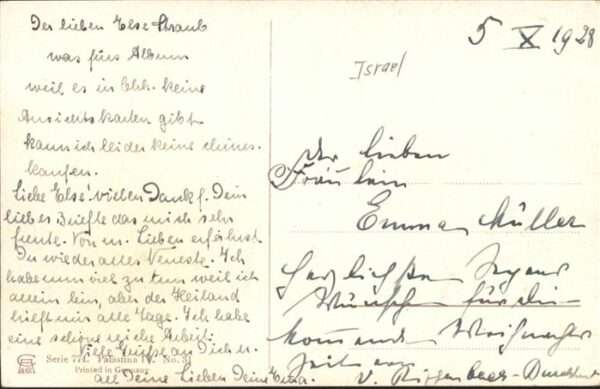 Der lieben Else Straub
was fürs Album
weil es in keine
Ansichtskarten gibt
kann ich leider keine chines.
kaufen.
Liebe Else! vielen Dank f. Dein
liebes Briefle das mich sehr
freute. Von m. Lieben erfährst
Du wieder alles Neueste. Ich
habe nun viel zu tun weil ich
allein bin, aber der Heiland
hilft mir alle Tage. Ich habe
eine schöne Arbeit.
Viele Grüße an Dich u.
all Deine Lieben Deine
Serie 774. Palästina No.
Printed in Germany
5 X 1928
Israel
Der lieben
Fräulein
Emma Müller
herzlichste Segens
Wünsche für die
kommende Weihnachts
Zeit von
v.